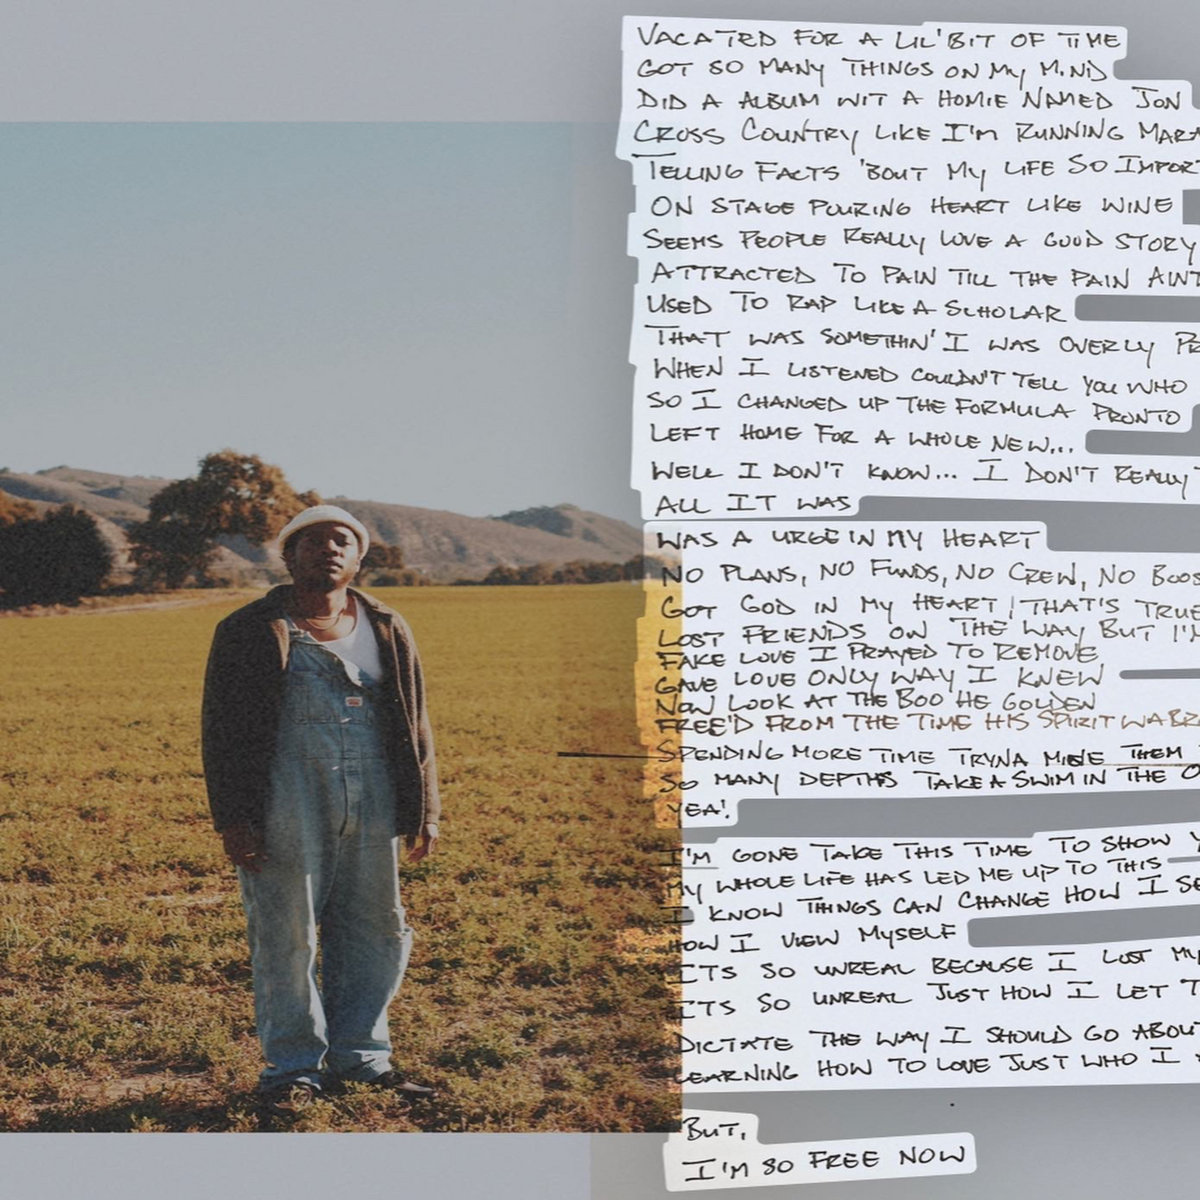 VACATED FOR A LIL' BIT OF TIME
GOT SO MANY THINGS ON MY MIND
DID A ALBUM WIT A HOMIE NAMED JON
CROSS COUNTRY LIKE I'M RUNNING MARA
TELLING FACTS 'BOUT MY LIFE SO IMPOR
ON STAGE POURING HEART LIKE WINE
SEEMS PEOPLE REALLY LOVE A GOOD STORY
ATTRACTED TO PAIN TILL THE PAIN AINT
USED TO RAP LIKE A SCHOLAR
THAT WAS SOMETHIN' I WAS OVERLY PR
WHEN I LISTENED COULDN'T TELL YOU WHO
SO I CHANGED UP THE FORMULA PRONTO
LEFT HOME FOR A WHOLE NEW...
WELL I DON'T KNOW... I DON'T REALLY
ALL IT WAS
WAS A URGE IN MY HEART
NO PLANS, NO FUNDS, NO CREW, NO BOOS
GOT GOD IN MY HEART, THAT'S TRUE
LOST FRIENDS ON THE WAY BUT I'M
FAKE LOVE I PRAYED TO REMOVE
GAVE LOVE ONLY WAY I KNEW
NOW LOOK AT THE BOO HE GOLDEN
FREE'D FROM THE TIME HIS SPIRIT WA
SPENDING MORE TIME TRYNA MINE THEM
SO MANY DEPTHS TAKE A SWIM IN THE O
YEA!
I'M GONE TAKE THIS TIME TO SHOW Y
MY WHOLE LIFE HAS LED ME UP TO THIS
I KNOW THINGS CAN CHANGE HOW I SE
HOW I VIEW MYSELF
ITS SO UNREAL BECAUSE I LOST MY
ITS SO UNREAL JUST HOW I LET T
DICTATE THE WAY I SHOULD GO ABOUT
LEARNING HOW TO LOVE JUST WHO I
BUT,
I'M SO FREE NOW